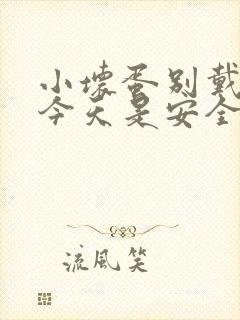 小坏蛋别戴
今天是安全
流風笑